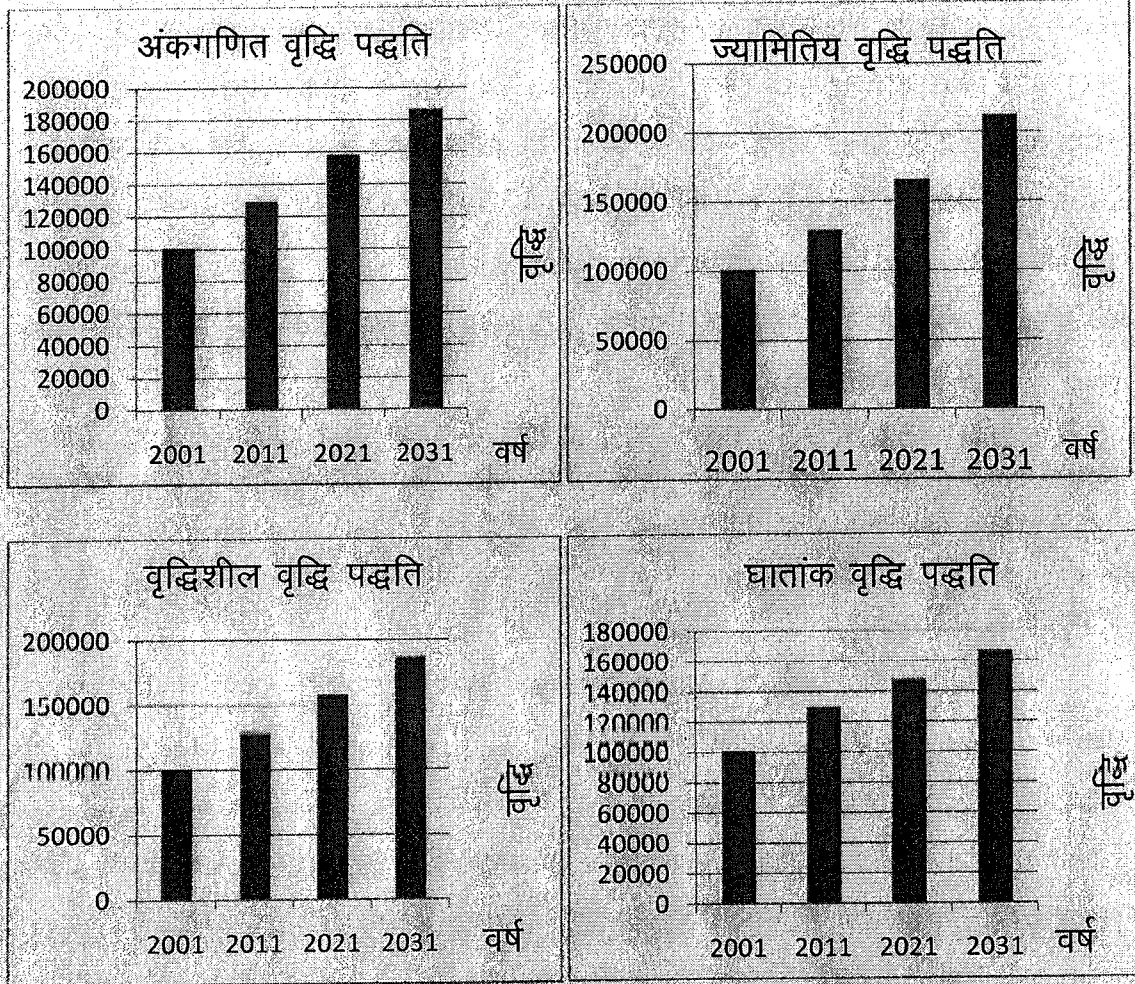 अंकगणित वृद्धि पद्धति
200000
180000
160000
140000
120000
100000
80000
60000
40000
20000
0
2001 2011 2021 2031
वर्ष
वृद्धि
ज्यामितिय वृद्धि पद्धति
250000
200000
150000
100000
50000
0
2001 2011 2021 2031
वर्ष
वृद्धि
वृद्धिशील वृद्धि पद्धति
200000
150000
100000
50000
0
2001 2011 2021 2031
वर्ष
वृद्धि
घातांक वृद्धि पद्धति
180000
160000
140000
120000
100000
80000
60000
40000
20000
0
2001 2011 2021 2031
वर्ष
वृद्धि